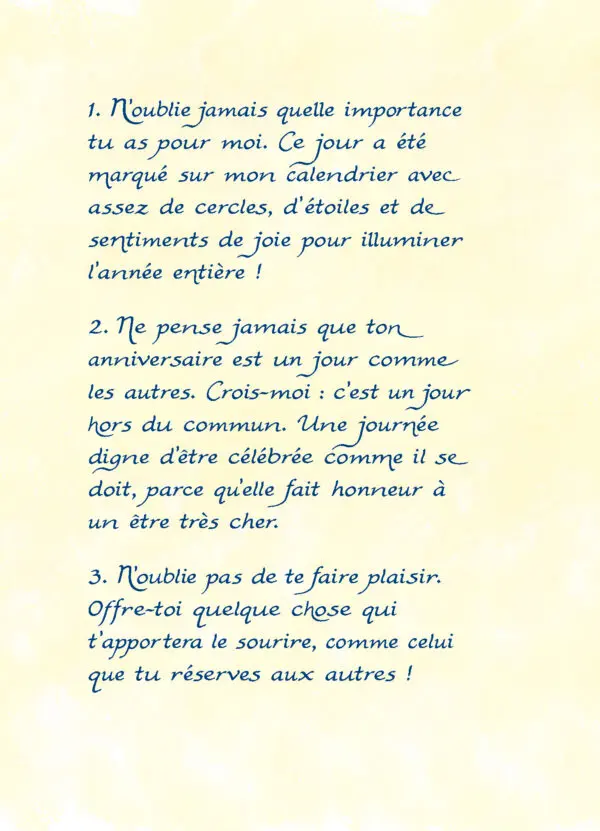 1. N'oublie jamais quelle importance
tu as pour moi. Ce jour a été
marqué sur mon calendrier avec
assez de cercles, d'étoiles et de
sentiments de joie pour illuminer
l'année entière !
2. Ne pense jamais que ton
anniversaire est un jour comme
les autres. Crois-moi : c'est un jour
hors du commun. Une journée
digne d'être célébrée comme il se
doit, parce qu'elle fait honneur à
un être très cher.
3. N'oublie pas de te faire plaisir.
Offre-toi quelque chose qui
t'apportera le sourire, comme celui
que tu réserves aux autres !